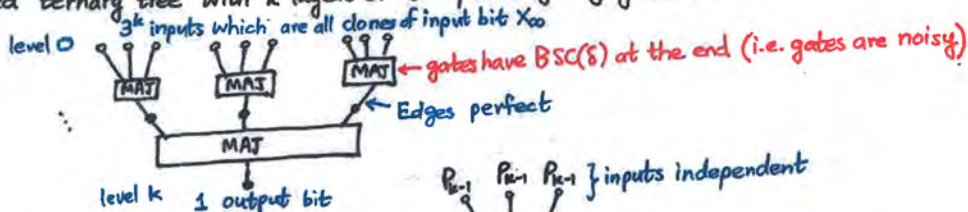 ternary tree with k layers of
3^k inputs which are all clones of input bit X₀₀
level 0
MAJ MAJ MAJ ← gates have BSC(δ) at the end (i.e. gates are noisy)
← Edges perfect
MAJ
level k 1 output bit
P_{k-1} P_{k-1} P_{k-1} } inputs independent